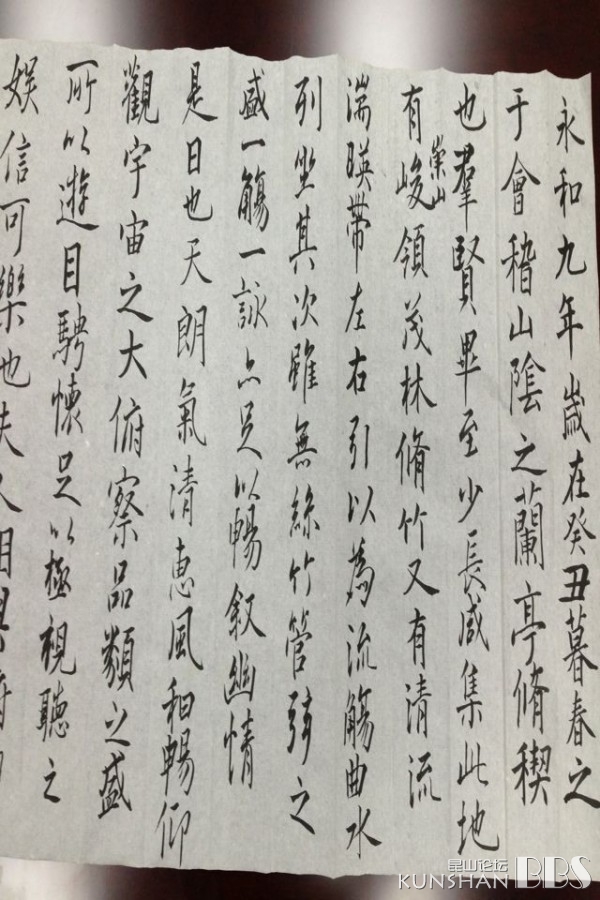 永和九年歲在癸丑暮春之
于會稽山陰之蘭亭脩稧
也羣賢畢至少長咸集此地
有崇山峻領茂林脩竹又有清流
湍暎帶左右引以為流觴曲水
列坐其次雖無絲竹管弦之
盛一觴一詠亦足以暢敘幽情
是日也天朗氣清惠風和暢仰
觀宇宙之大俯察品類之盛
所以遊目騁懷足以極視聽之
娛信可樂也夫人相與俯
昆山论坛
KUNSHAN BBS